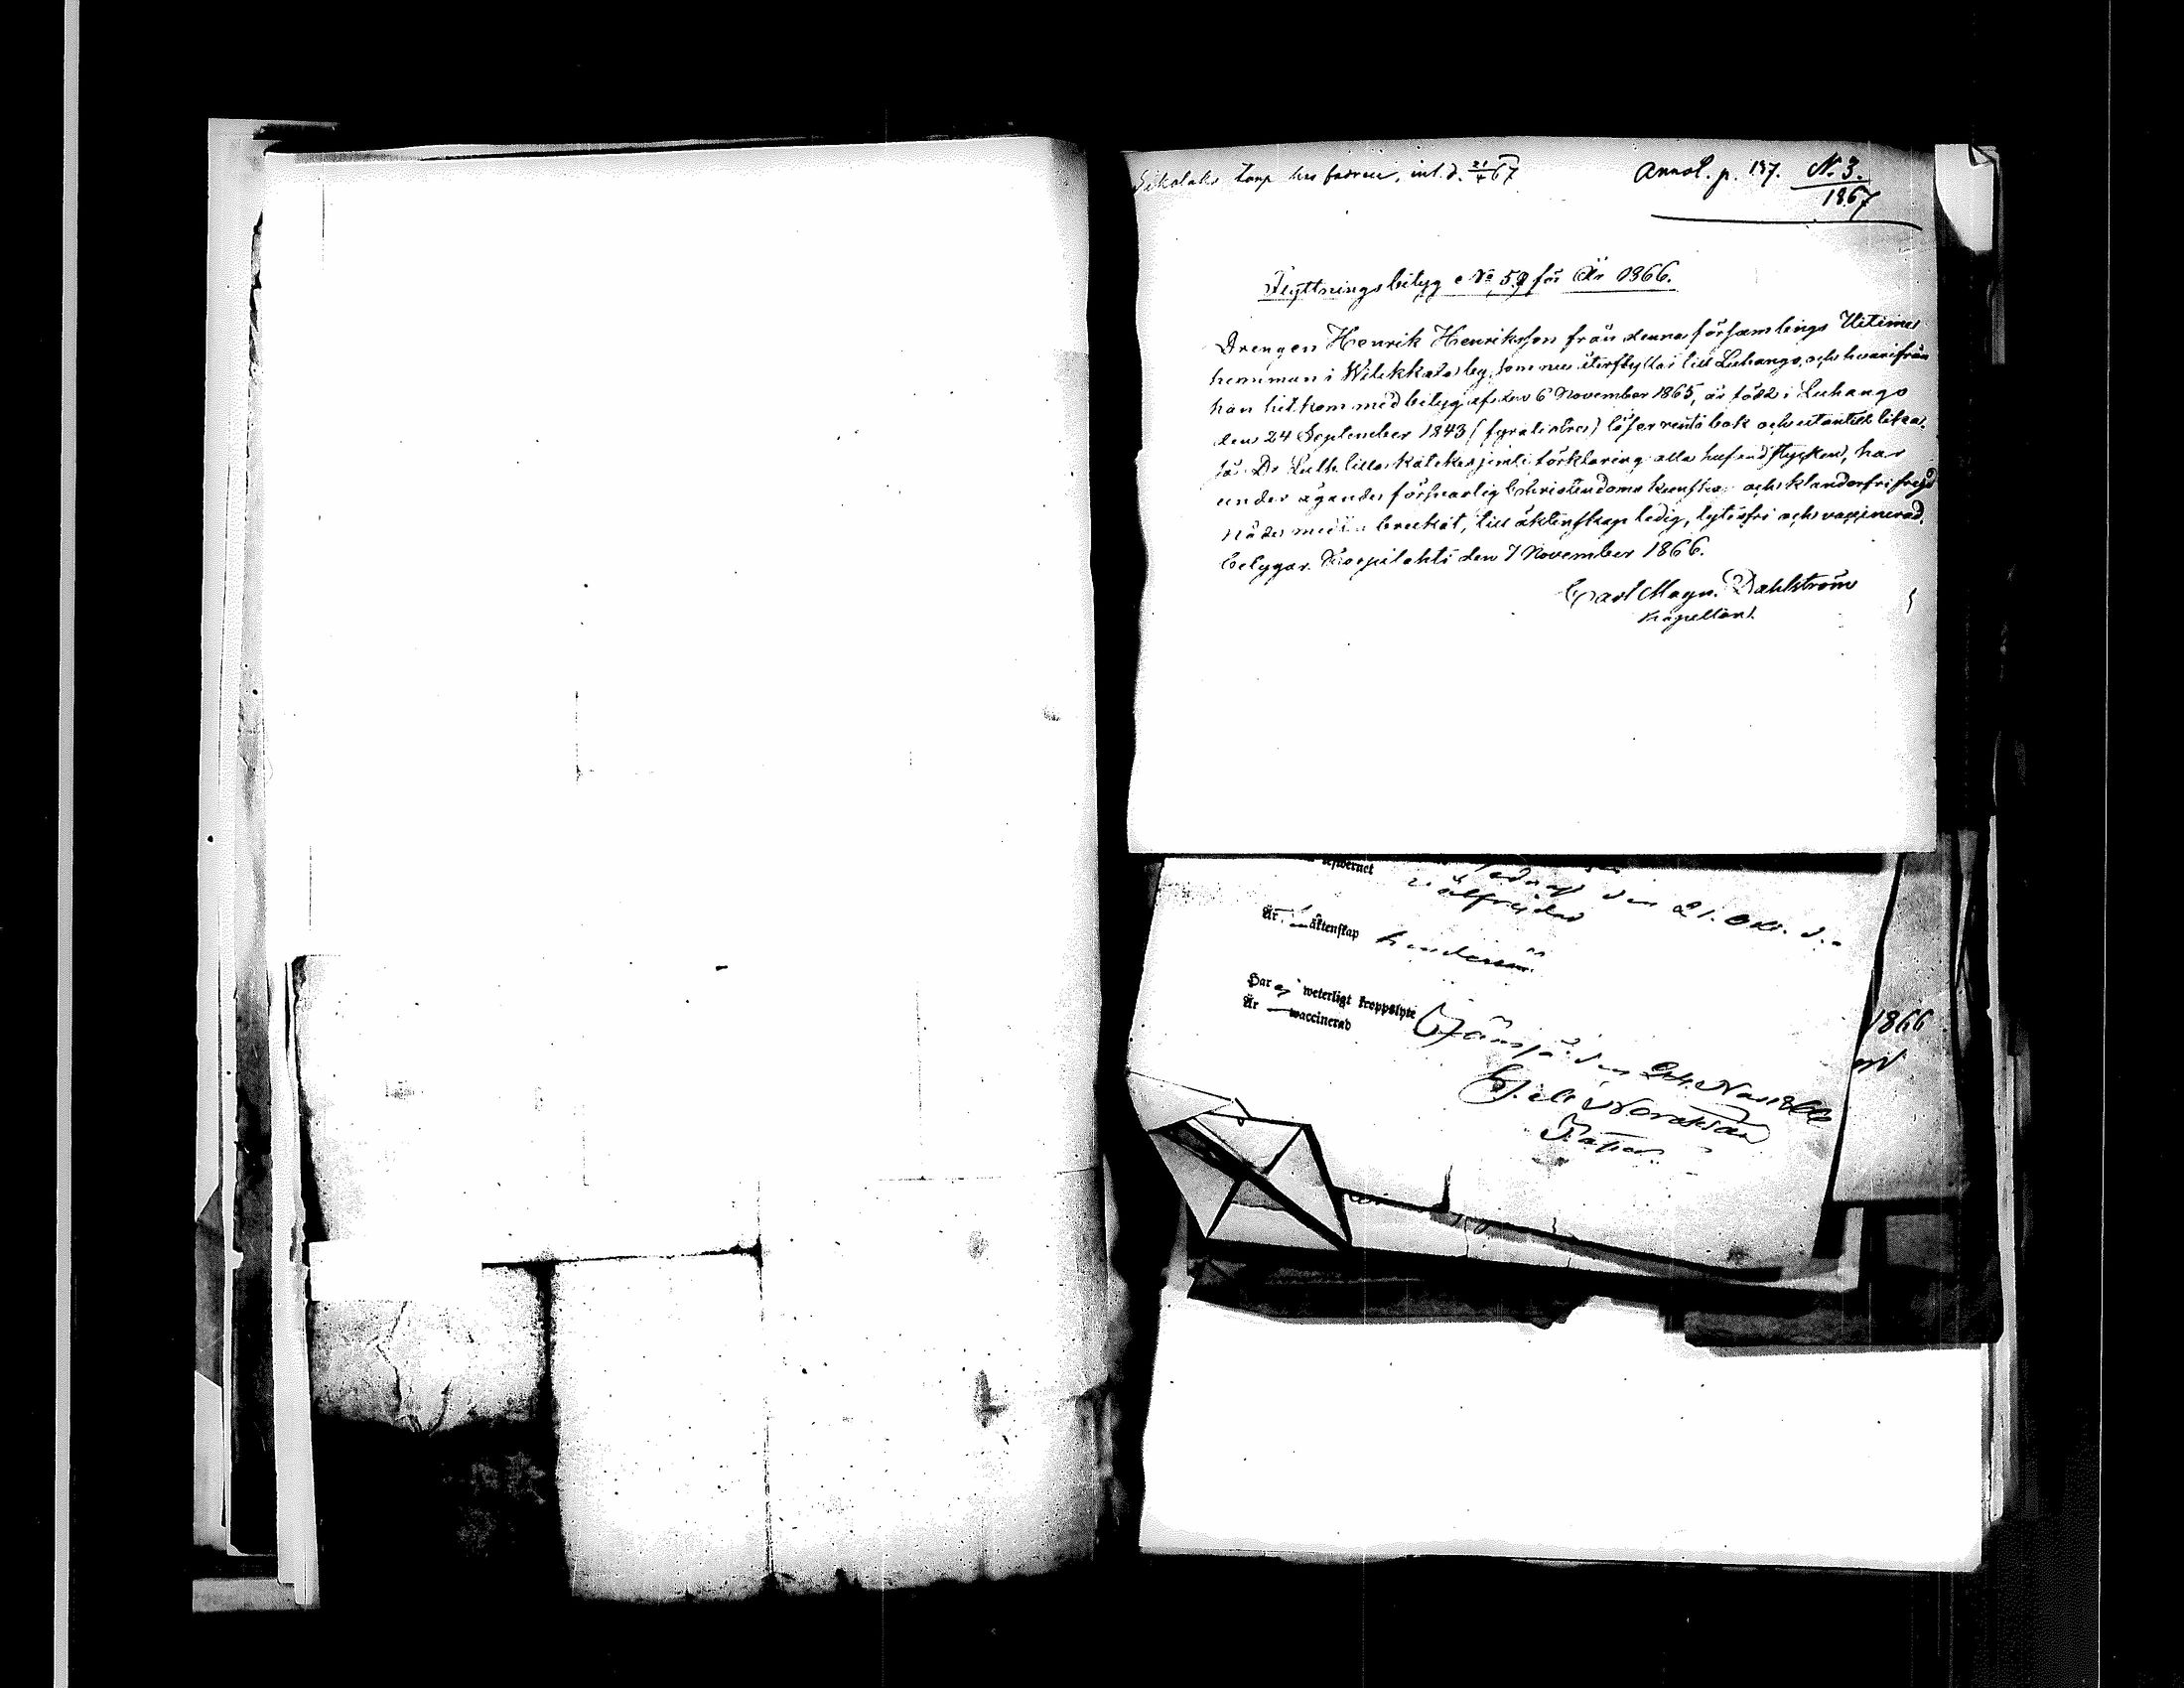 torp hos fadren, inl. d. 21/4 67
Annot. p. 137. N. 3.
1867
Flyttningsbetyg No 59 för År 1866.
Drengen Henrik Henriksson från denna församlings Uitimus
hemman i Wilekkala by, som nu återflyttar till Luhango, och hvarifrån
han hitkom med betyg af den 6 November 1865, är född i Luhango
den 24 September 1843 (fyratiotre) läser rent i bok och utantill likaså
Dr Luth. lilla Katekes jemte förklaring alla hufvudstycken, har
under ägande försvarlig Christendoms kunskap och klanderfri frejd
nåde medlen brukat, till äktenskap ledig, lytesfri och vaccinerad,
betygar. Korpilahti den 7 November 1866.
Carl Magn. Dahlström
Kapellan.
den 21. Okt.
välfrejdad
Är i äktenskap hinderslös
Har ej weterligt kroppslyte
Är waccinerad
Jämsä den 24 Nov 1866
1866